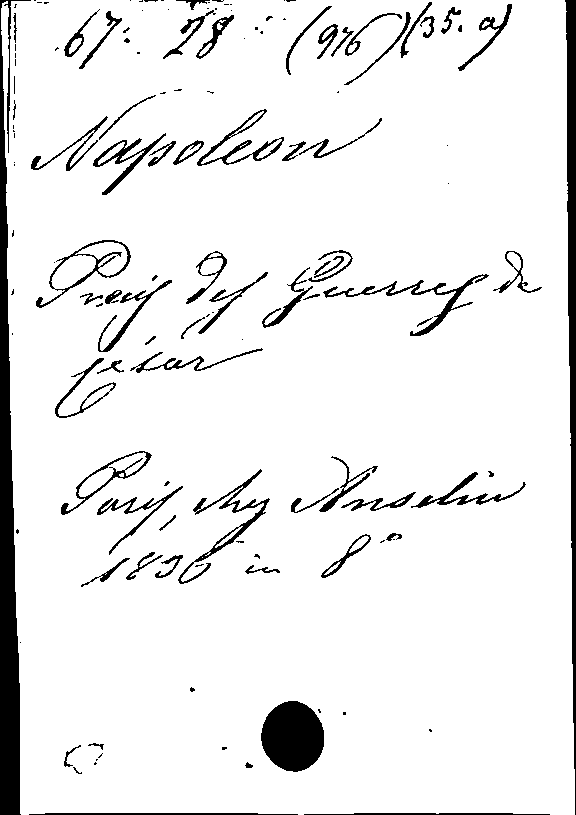 67. 28 (976) (35. a)
Napoleon
Precis des Guerres de
César
Paris, chez Anselin
1836 in 8°